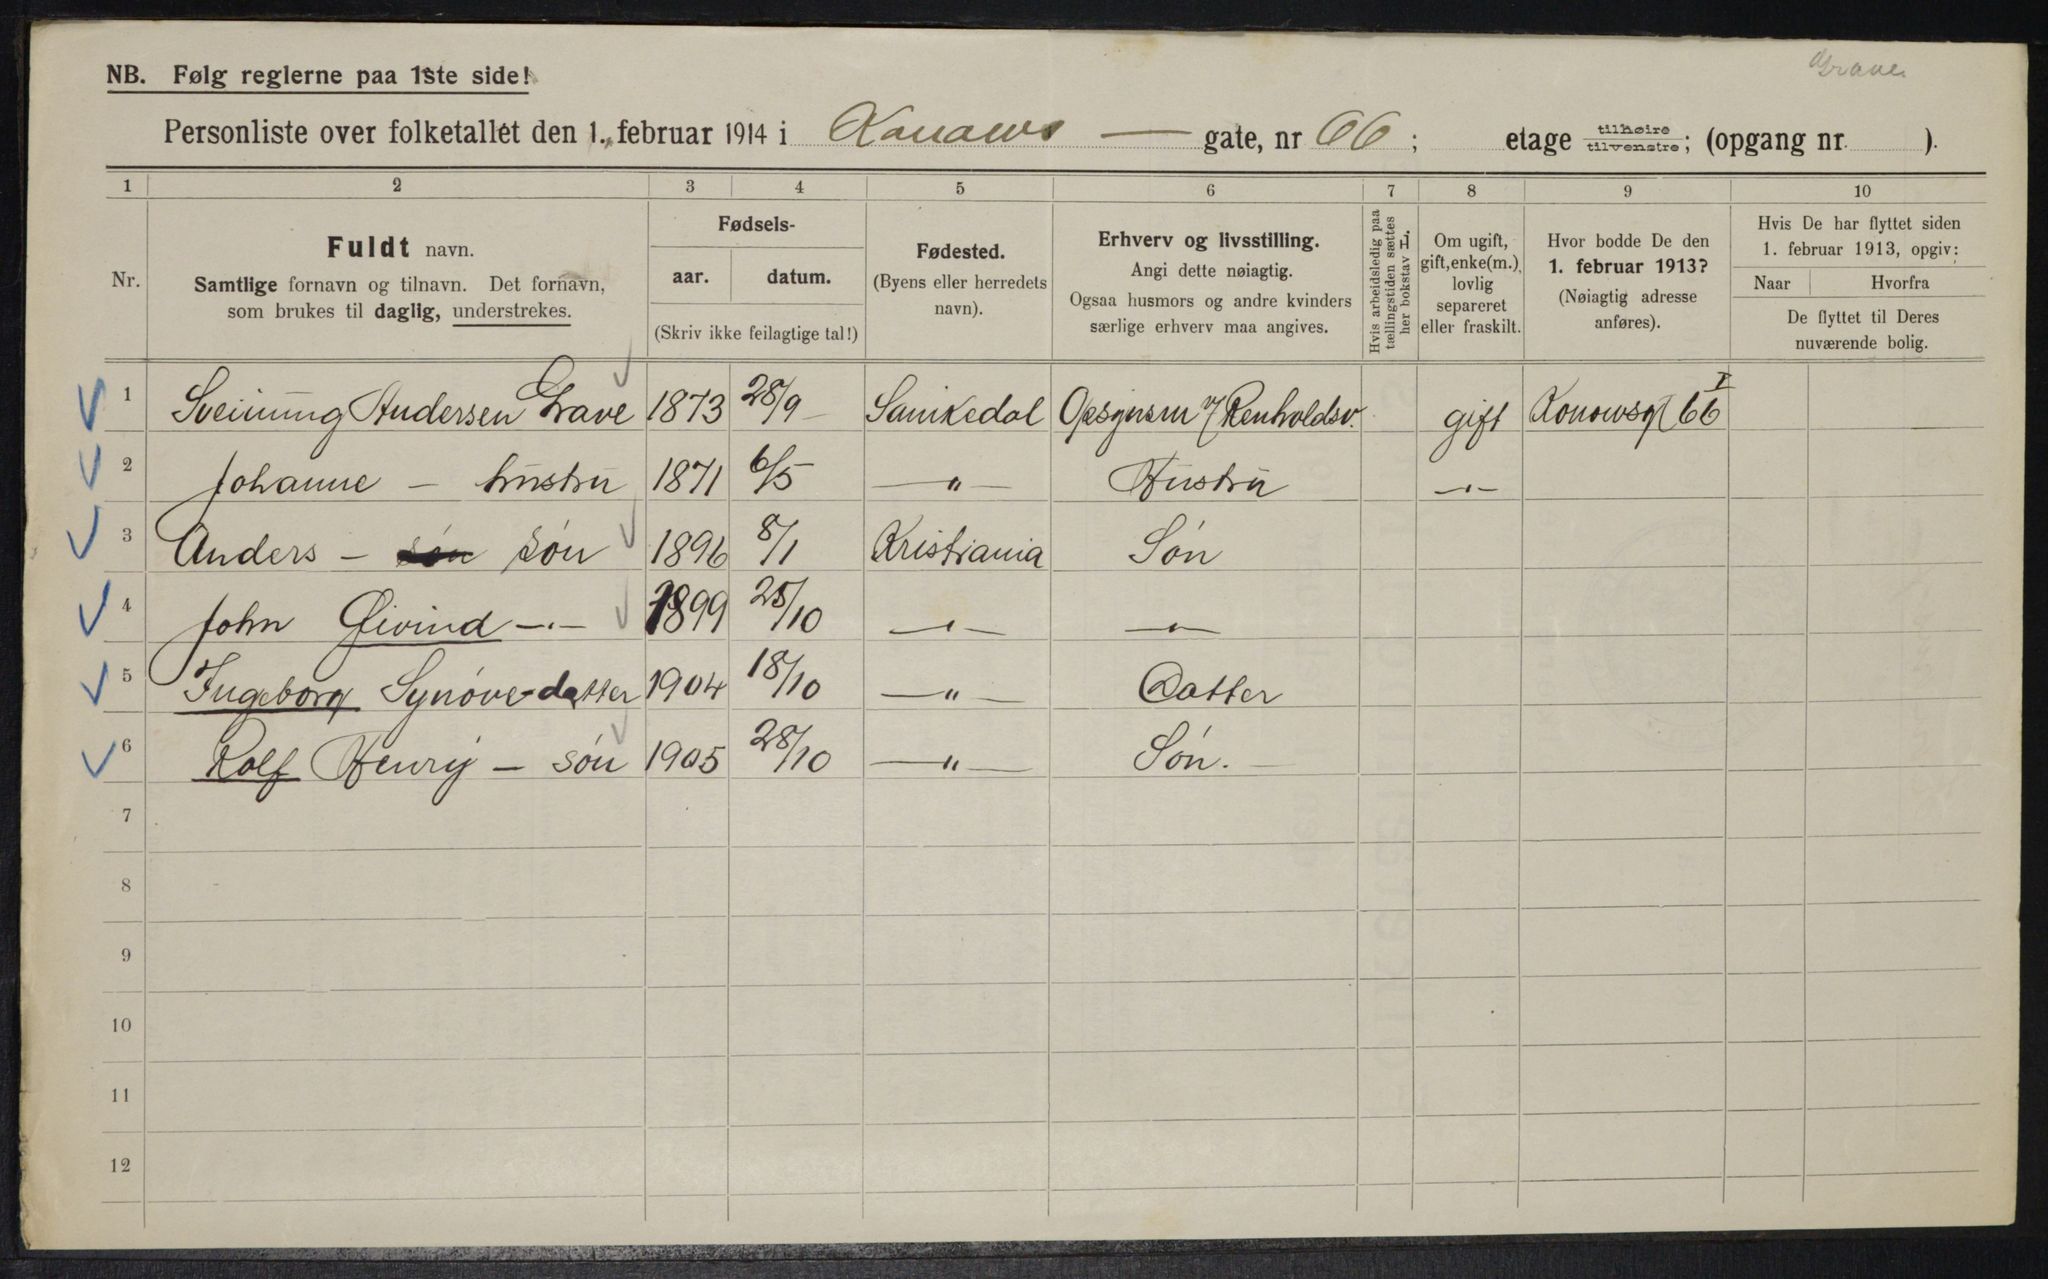 Grave
NB. Følg reglerne paa 1ste side!
Personliste over folketallet den 1. februar 1914 i Konows — gate, nr 66; etage tilhøire tilvenstre; (opgang nr. ).
1 2 3 4 5 6 7 8 9 10
Nr.
Fuldt navn.
Samtlige fornavn og tilnavn. Det fornavn,
som brukes til daglig, understrekes.
Fødsels-
aar. datum.
(Skriv ikke feilagtige tal!)
Fødested.
(Byens eller herredets
navn).
Erhverv og livsstilling.
Angi dette nøiagtig.
Ogsaa husmors og andre kvinders
særlige erhverv maa angives.
Hvis arbeidsledig paa
tællingstiden sættes
her bokstav L.
Om ugift,
gift, enke(m.),
lovlig
separeret
eller fraskilt.
Hvor bodde De den
1. februar 1913?
(Nøiagtig adresse
anføres).
Hvis De har flyttet siden
1. februar 1913, opgiv:
Naar Hvorfra
De flyttet til Deres
nuværende bolig.
1 Sveinung Andersen Grave 1873 28/9 Sanikedal Opsynsm v/ Renholdsv. gift Konowsgt 66 I
2 Johanne – hustru 1871 6/5 —"— Hustru —"—
3 Anders – søn søn 1896 8/1 Kristiania Søn
4 John Øivind —"— 1899 25/10 —"— —"—
5 Ingeborg Synøve - datter 1904 18/10 —"— Datter
6 Rolf Henry – søn 1905 28/10 —"— Søn. –
7
8
9
10
11
12